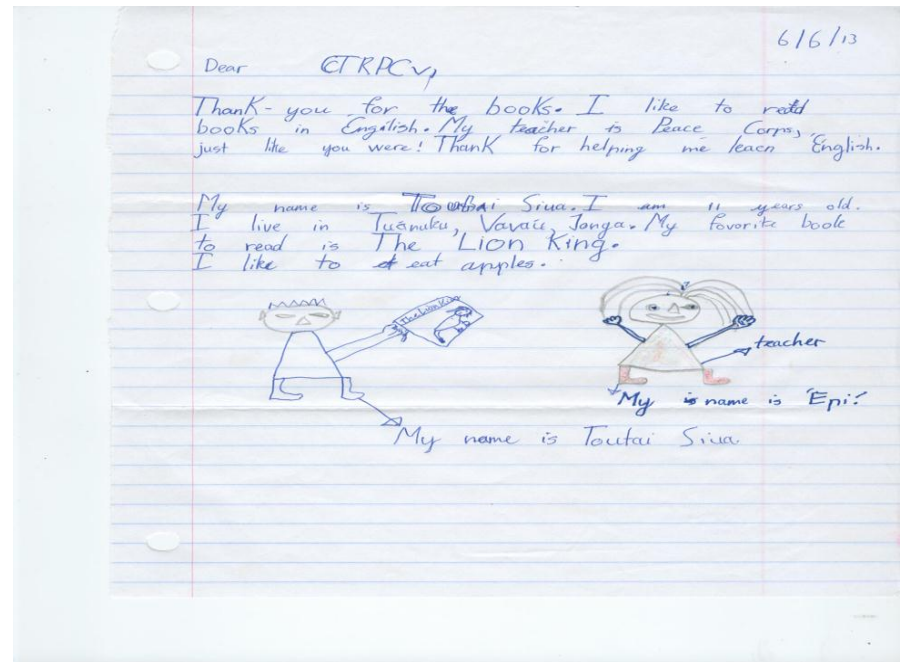 6/6/13
Dear CTRPCV,
Thank-you for the books. I like to read
books in Engilish. My teacher is Peace Corps,
just like you were! Thank for helping me learn English.
My name is Toutai Siua. I am 11 years old.
I live in Tu'anuku, Vava'u, Tonga. My favorite book
to read is The Lion King.
I like to eat apples.
The Lion King
teacher
My name is 'Epi!
My name is Toutai Siua